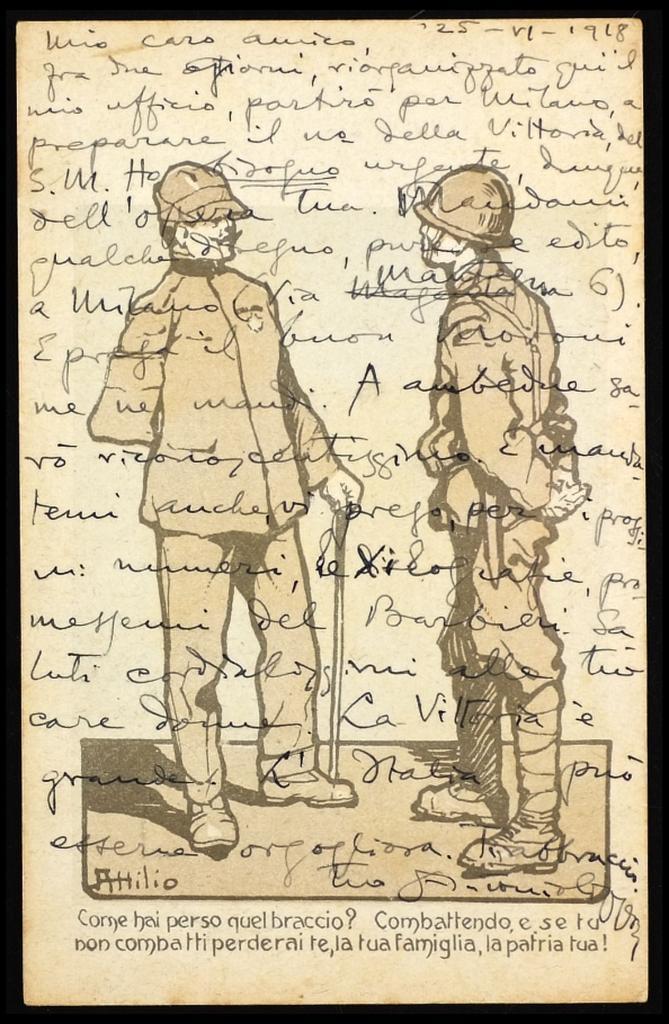 25-VI-1918
Mio caro amico,
fra due giorni, riorganizzato qui il
mio ufficio, partirò per Milano, a
preparare il no della Vittoria, del
S. M. Ho bisogno urgente, dunque,
dell'opera tua. Mandami
qualche disegno, pure edito,
a Milano (Via Magenta Mantegna 6).
E prega il buon che
me ne mandi. A ambedue sa-
rò riconoscentissimo. E manda-
temi anche, vi prego, per i prossi-
mi numeri, le xilografie, pro-
messemi del Barbieri. Sa-
luti cordialissimi alle tue
care donne. La Vittoria è
grande. L'Italia può
esserne orgogliosa. T'abbraccio.
tuo
Attilio
Come hai perso quel braccio? Combattendo, e se tu
non combatti perderai te, la tua famiglia, la patria tua!